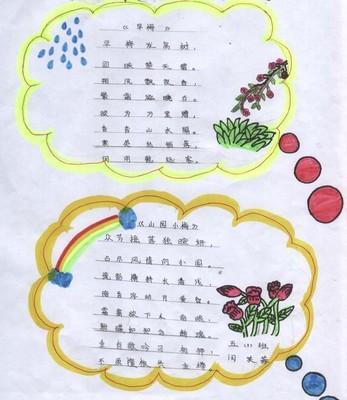 《早梅》
早梅发高树，
迥映楚天碧。
朔风飘夜香，
繁霜滋晓白。
欲为万里赠，
杳杳山水隔。
寒英坐销落，
何用慰远客。
《山园小梅》
众芳摇落独暄妍，
占尽风情向小园。
疏影横斜水清浅，
暗香浮动月黄昏。
霜禽欲下先偷眼，
粉蝶如知合断魂。
幸有微吟可相狎，
不须檀板共金樽
五 班